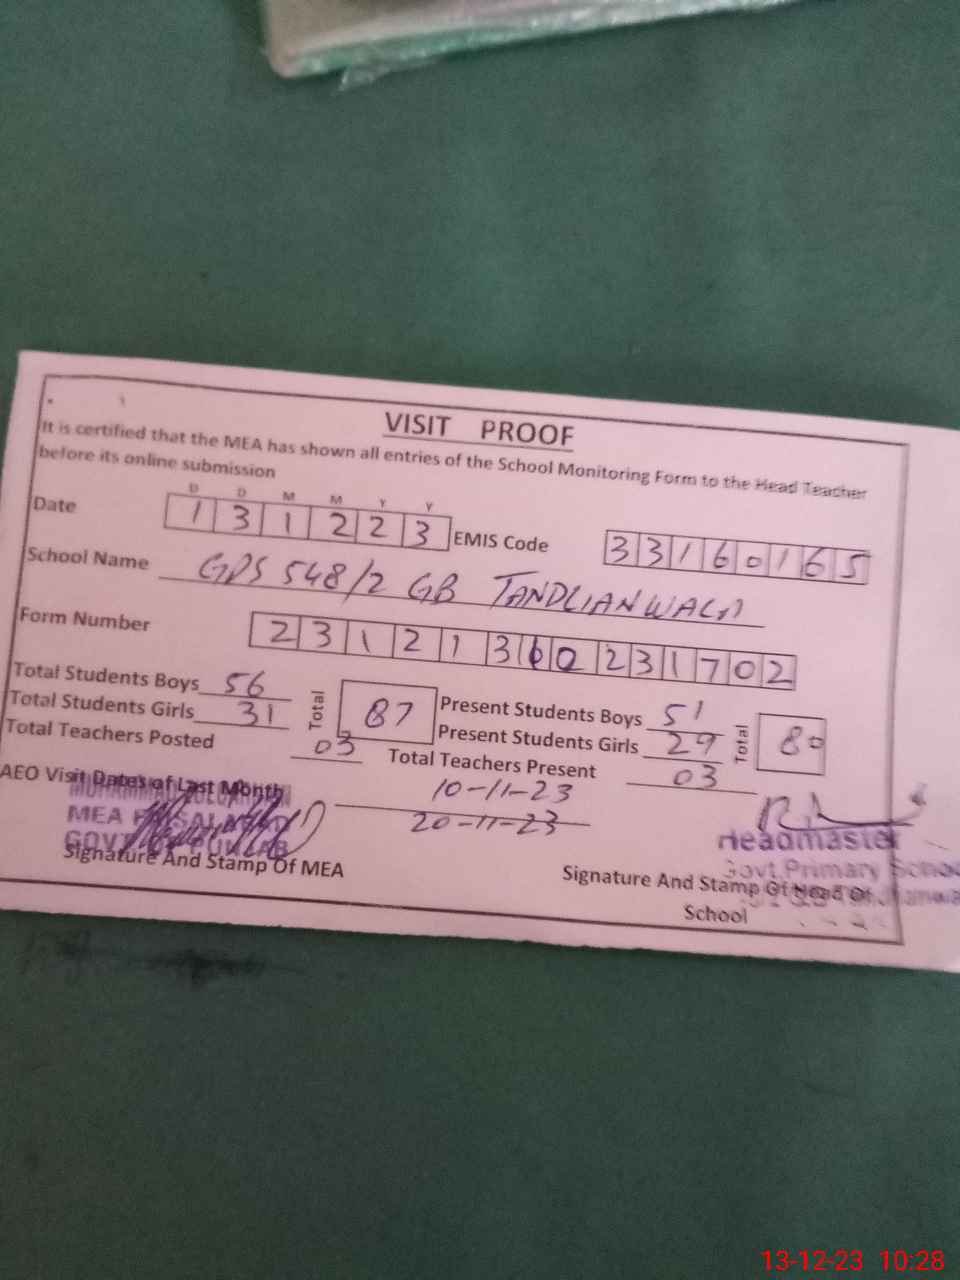 VISIT PROOF
It is certified that the MEA has shown all entries of the School Monitoring Form to the Head Teacher
before its online submission
D D M M Y Y
Date 1 3 1 2 2 3 EMIS Code 3 3 1 6 0 1 6 5
School Name GPS 548/2 GB TANDLIANWALA
Form Number 2 3 1 2 1 3 6 0 2 3 1 7 0 2
Total Students Boys 56 Present Students Boys 51
Total Students Girls 31 Total 87 Present Students Girls 29 Total 80
Total Teachers Posted 03 Total Teachers Present 03
AEO Visit Dates of Last Month 10-11-23
20-11-23
MEA FAISALABAD
GOVT OF PUNJAB
Signature And Stamp Of MEA
Headmaster
Govt. Primary School
Signature And Stamp Of Head Of
School
13-12-23 10:28